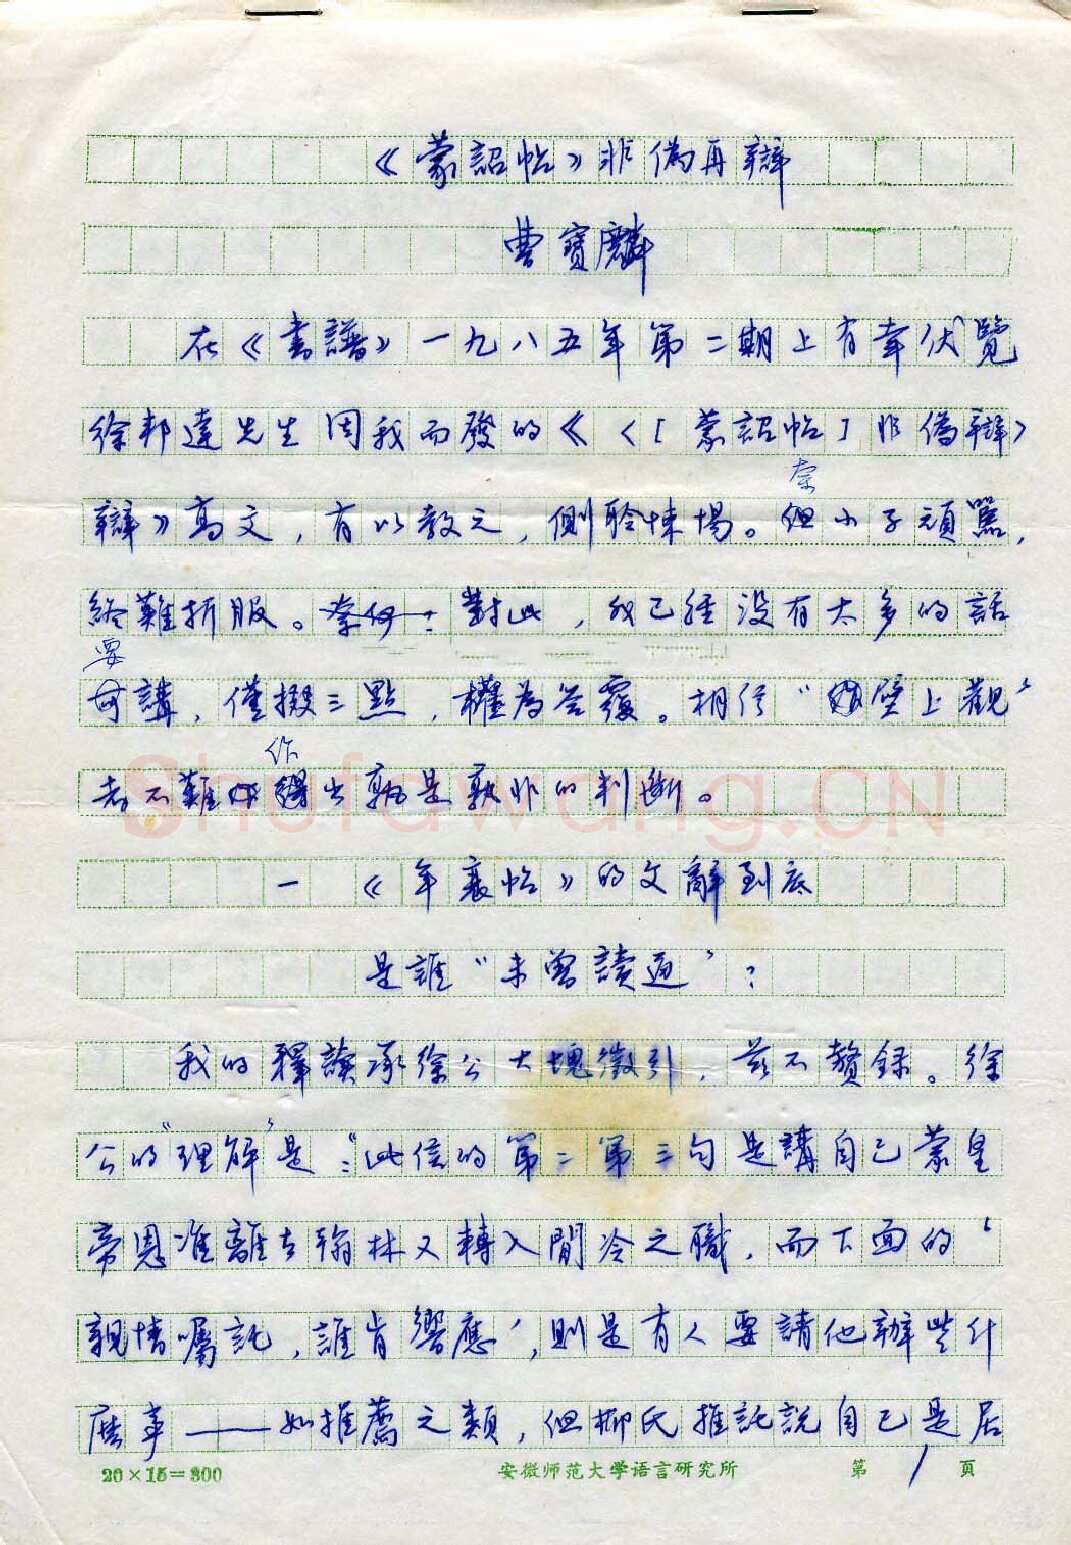 《蒙詔帖》非偽再辯
曹寶麟
在《書譜》一九八五年第二期上有幸伏覽
徐邦達先生因我而發的《〈[蒙詔帖]非偽辯〉
奈
辯》高文，有以教之，側聆悚惕。但小子頑嚚，
終難折服。奈何！對此，我已經沒有太多的話
要
可講，僅掇三點，權為答覆。相信“壁上觀”
作
者不難得出孰是孰非的判斷。
Shufawang.CN
一 《年衰帖》的文辭到底
是誰“未曾讀通”？
我的釋讀承徐公大塊徵引，茲不贅錄。徐
公的“理解”是：“此信的第二第三句是講自己蒙皇
帝恩准離去翰林又轉入閒冷之職，而下面的‘
親情囑託，誰肯響應’，則是有人要請他辦些什
麽事——如推薦之類，但柳氏推託說自己是居
20×15=300 安徽师范大学语言研究所 第1頁